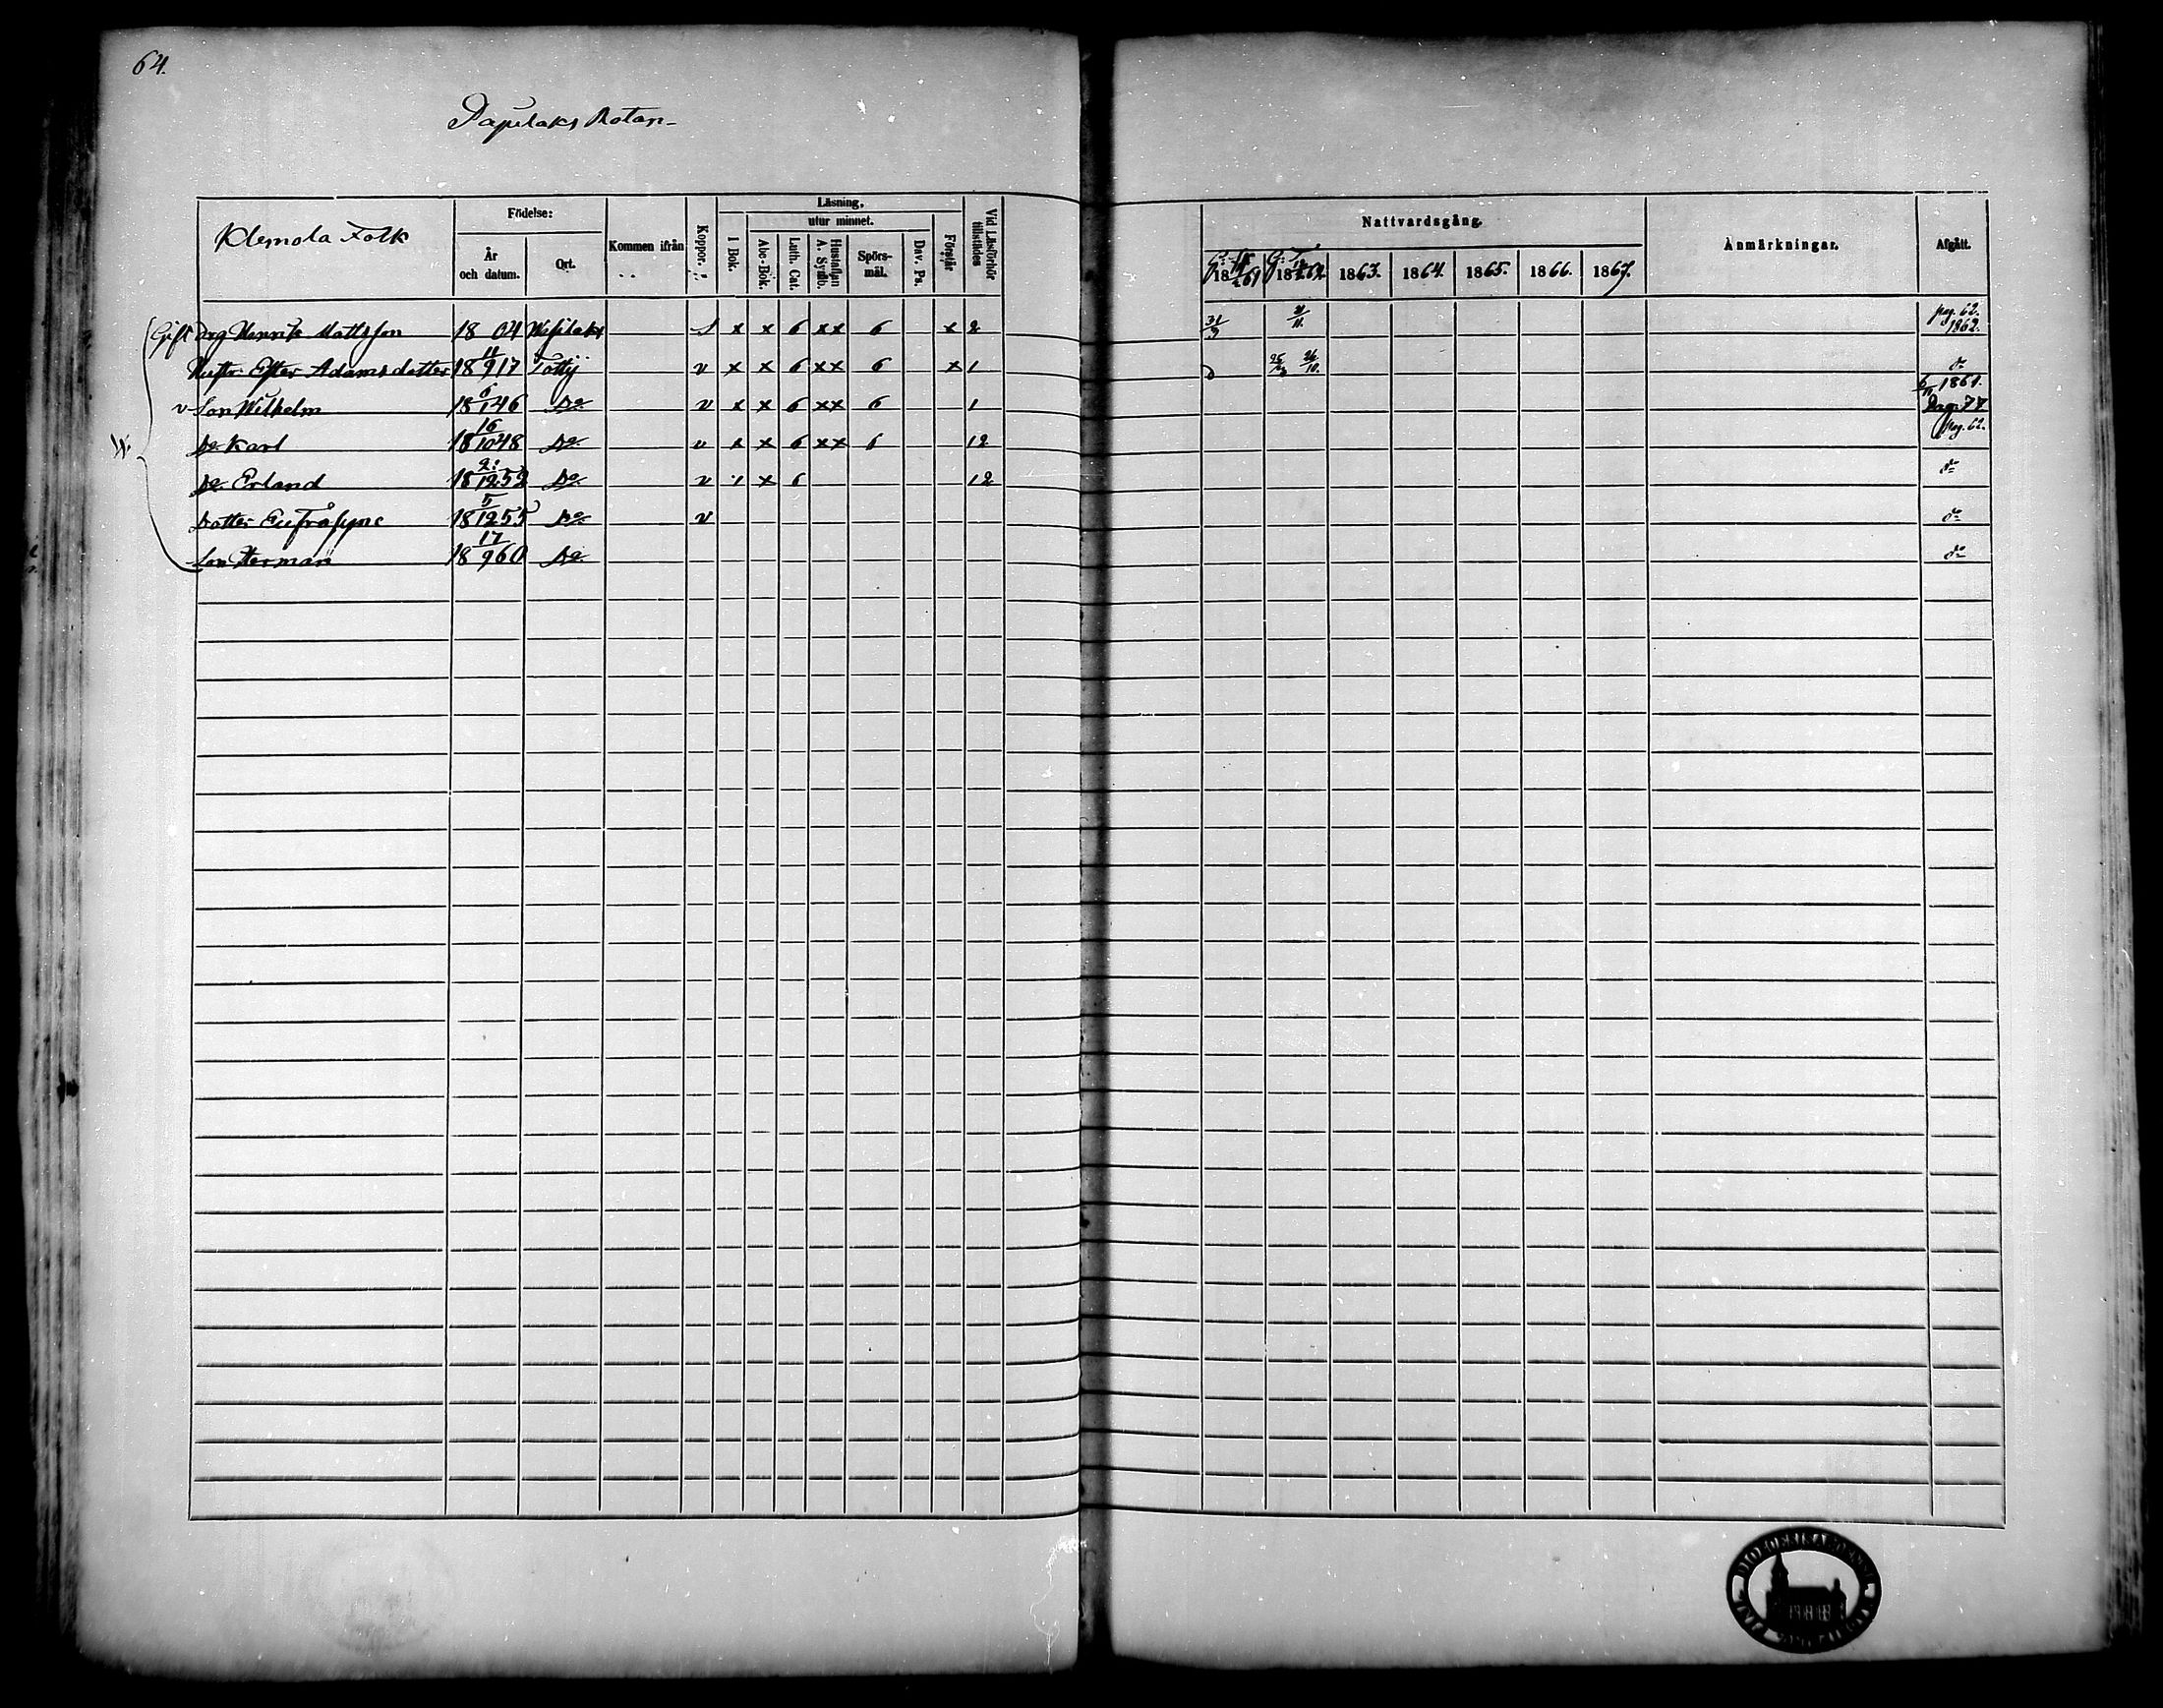 64.
Papulaks Rotan
Klemola Folk
Födelse:
År och datum.
Ort.
Kommen ifrån
Koppor.
Läsning,
utur minnet.
I Bok.
Abc-Bok.
Luth. Cat.
Hustaflan A. Symb.
Spörsmål.
Dav. Ps.
Förstår
Vid Läsförhör tillstädes
Nattvardsgång.
18 61 18 62 1863. 1864. 1865. 1866. 1867.
Anmärkningar.
Afgått.
Gift Drg Henrik Mattsson 18 04 Wesilaks x x 6 xx 6 x 2 31/3 pag. 62. 1862.
Hustr. Ester Adamsdotter 18 11/9 17 Tottij v x x 6 xx 6 x 1 do
v Son Wilhelm 18 6/1 46 Do v x x 6 xx 6 1 6/11 1861. Pag. 77
Do Karl 18 16/10 48 Do v x x 6 xx 6 12 pag. 62.
Do Erland 18 12 52 Do v x 6 12 do
Dotter Eufrosyne 18 5/12 55 Do v do
Son Herman 18 17/9 60 Do do